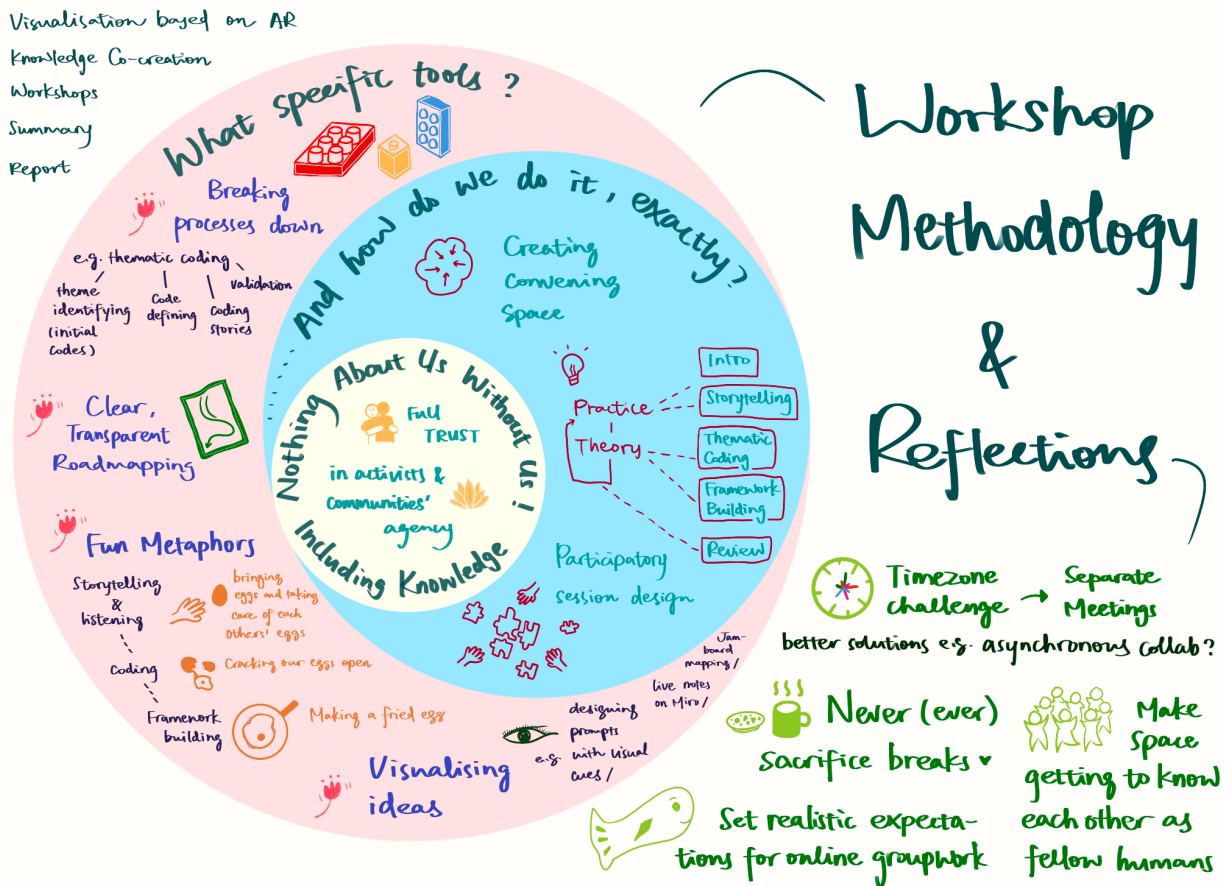 Visualisation based on AR
Knowledge Co-creation
Workshops
Summary
Report
Workshop
Methodology
&
Reflections
What specific tools?
Breaking
processes down
e.g. thematic coding
theme
identifying
(initial
codes)
Code
defining
Coding
stories
validation
Clear,
Transparent
Roadmapping
Fun Metaphors
Storytelling
&
listening
bringing
eggs and taking
care of each
others' eggs
Coding
Cracking our eggs open
Framework
building
Making a fried egg
Visualising
ideas
e.g.
designing
prompts
with visual
cues /
live notes
on Miro /
Jam-
board
mapping /
And how do we do it, exactly?
Creating
Convening
Space
Practice
Theory
Intro
Storytelling
Thematic
Coding
Framework
Building
Review
Participatory
session design
Nothing About Us Without Us!
Including Knowledge
Full
TRUST
in activists &
communities'
agency
Timezone
challenge
Separate
Meetings
better solutions e.g. asynchronous collab?
Never (ever)
sacrifice breaks
Make
space
getting to know
each other as
fellow humans
Set realistic expecta-
tions for online groupwork